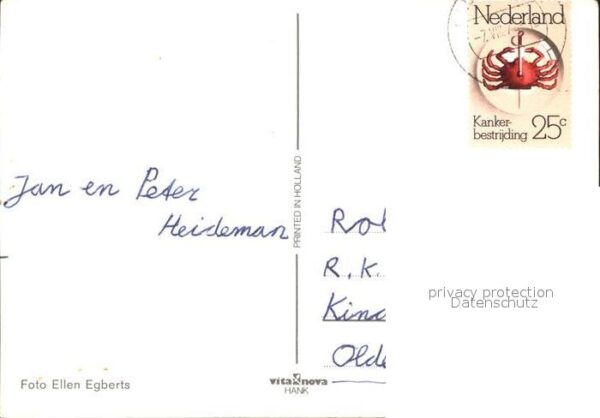 Nederland
Kanker-
bestrijding 25c
Jan en Peter
Heideman
PRINTED IN HOLLAND
R.K.
privacy protection
Datenschutz
Foto Ellen Egberts
vita nova
HANK